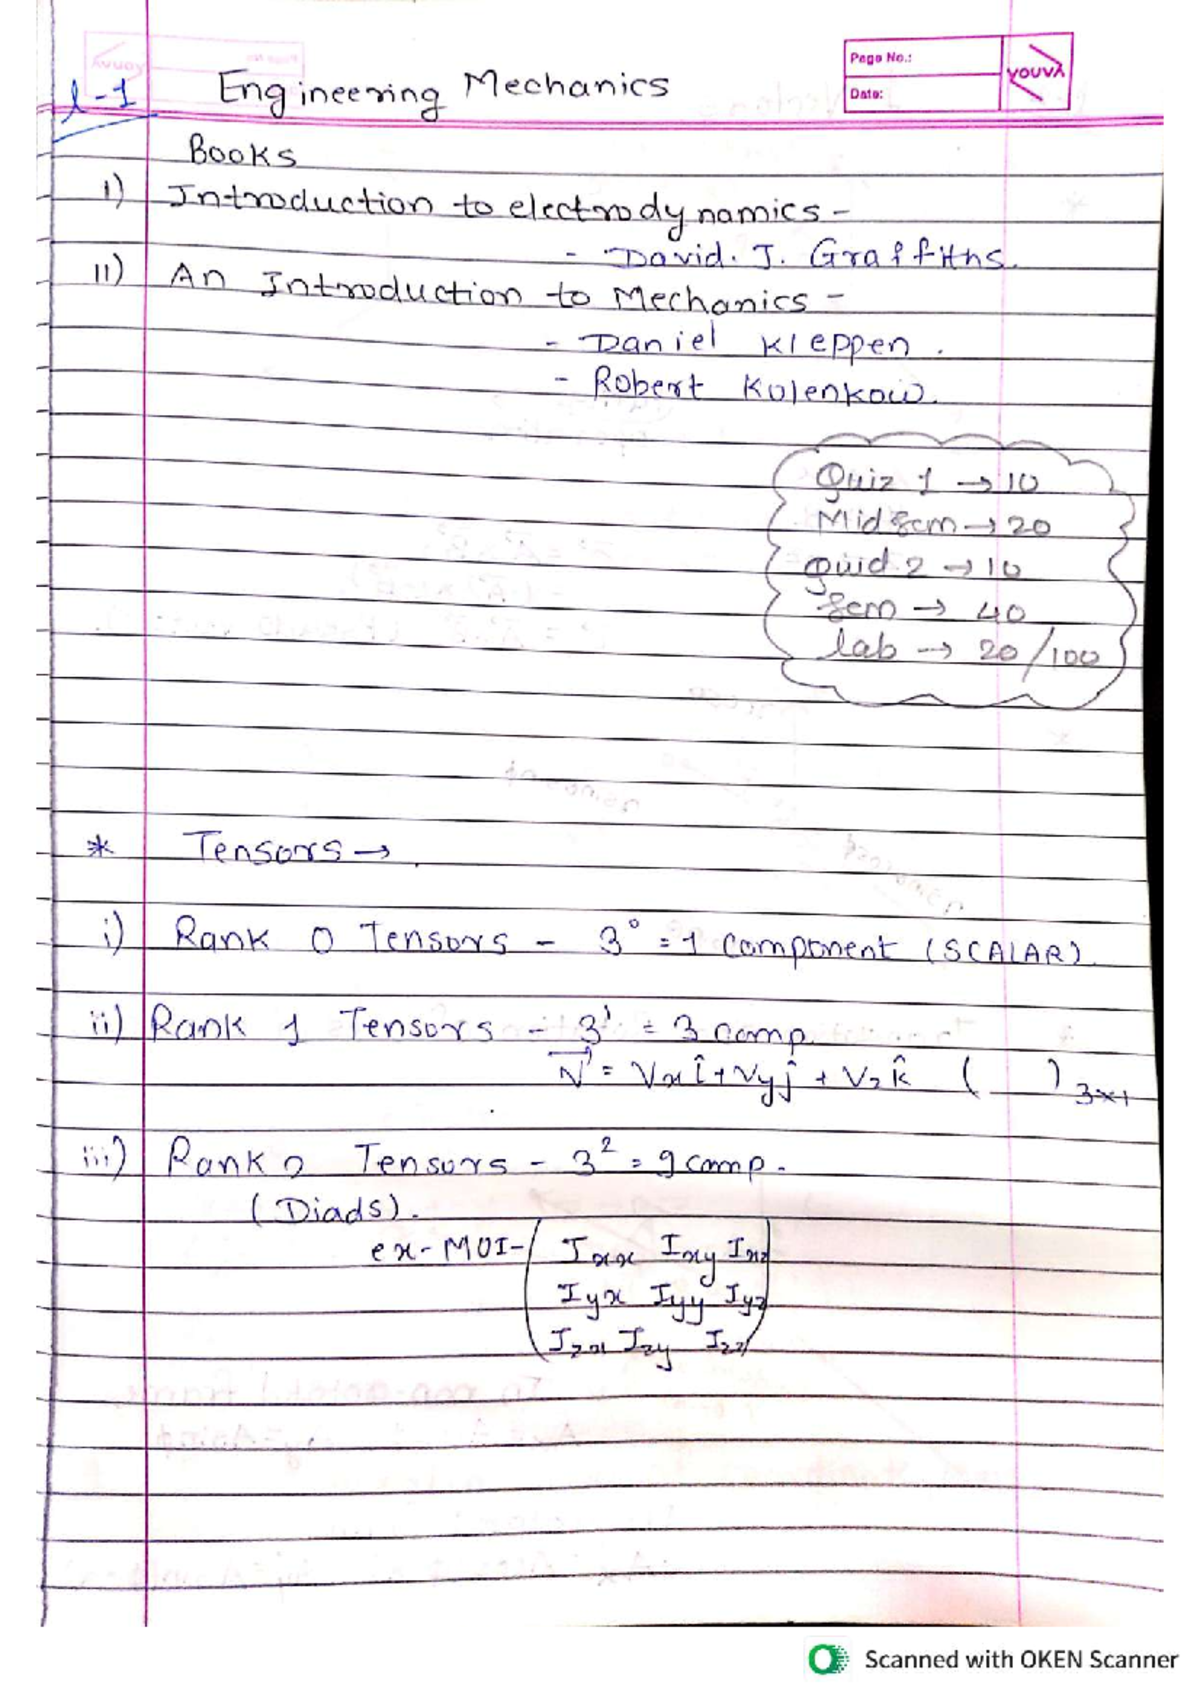 Page No.:
YOUVA
Date:
l-1
Engineering Mechanics
Books
I) Introduction to electrodynamics -
- David. J. Graffiths.
II) An Introduction to Mechanics -
- Daniel Kleppen.
- Robert Kolenkow.
Quiz 1 → 10
Midsem → 20
Quid 2 → 10
Sem → 40
lab → 20/100
* Tensors →
i) Rank 0 Tensors - 3⁰ = 1 component (SCALAR).
ii) Rank 1 Tensors - 3¹ = 3 comp.
V⃗ = Vxî + Vyĵ + Vzk̂ ( )3×1
iii) Rank 2 Tensors - 3² = 9 comp.
(Diads).
ex - MOI - Ixx Ixy Ixz
Iyx Iyy Iyz
Izx Izy Izz
Scanned with OKEN Scanner